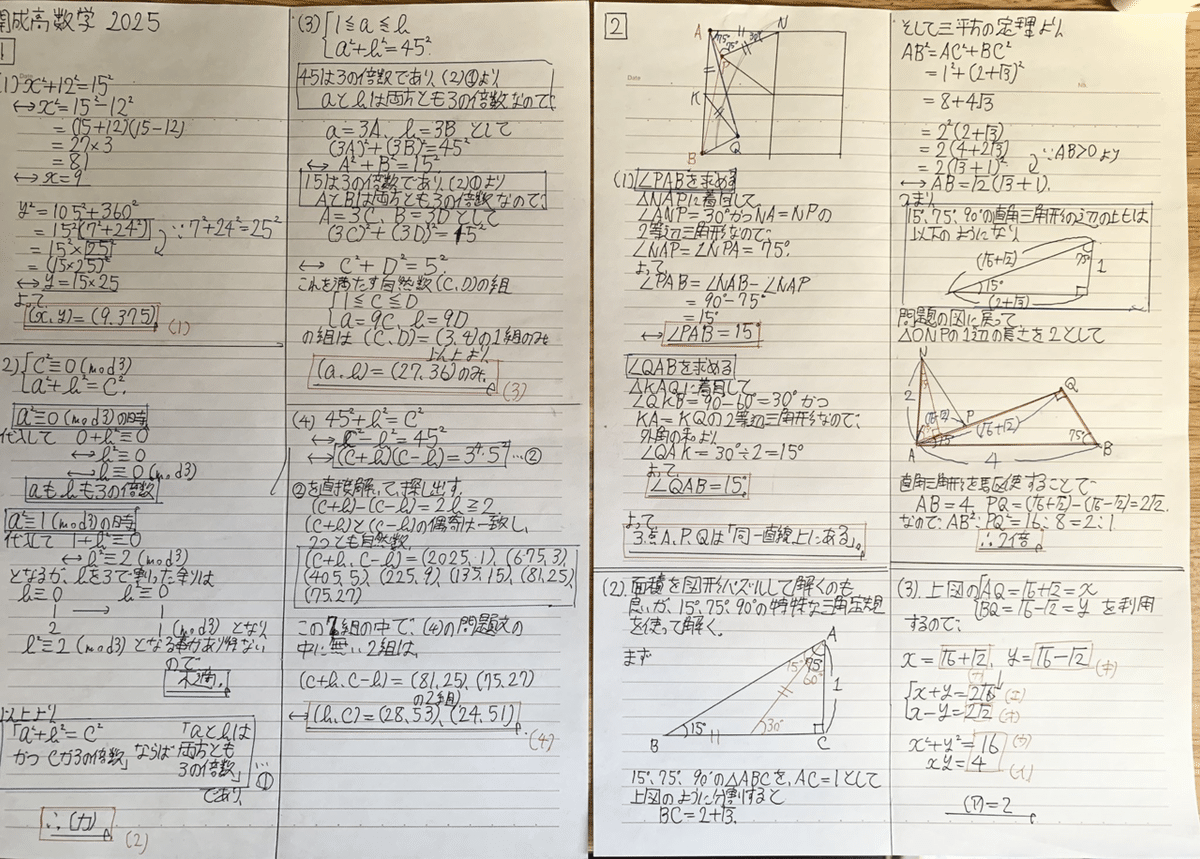 開成高数学 2025
1
(1) x²+12²=15²
↔x²=15²-12²
=(15+12)(15-12)
=27×3
=81
↔x=9
y²=105²+360²
=15²(7²+24²) ∵7²+24²=25²
=15²×25²
=(15×25)²
↔y=15×25
よって
(x,y)=(9,375) (1)
2) { C≡0 (mod3)
a²+b²=C²
a²≡0(mod3)の時
代入して 0+b²≡0
↔b²≡0
↔b≡0(mod3)
aもbも3の倍数
a²≡1(mod3)の時
代入して 1+b²≡0
↔b²≡2(mod3)
となるが、bを3で割った余りは
b≡0 b²≡0
1 → 1
2 1 (mod3)となり
b²≡2(mod3)となる事があり得ない
ので
不適。
以上より
「a²+b²=C²
かつCが3の倍数」ならば「aとbは両方とも3の倍数」…①
であり、
∴(カ) (2)
(3) { 1≦a≦b
a²+b²=45²
45は3の倍数であり、(2)①より
aとbは両方とも3の倍数なので、
a=3A、b=3Bとして
(3A)²+(3B)²=45²
↔A²+B²=15²
15は3の倍数であり(2)①より
AとBは両方とも3の倍数なので、
A=3C、B=3Dとして
(3C)²+(3D)²=15²
↔C²+D²=5²
これを満たす自然数(C,D)の組
{ 1≦C≦D
a=9C、b=9D
の組は(C,D)=(3,4)の1組のみ
以上より
(a,b)=(27,36)のみ (3)
(4) 45²+b²=C²
↔C²-b²=45²
↔(C+b)(C-b)=3⁴・5² …②
②を直接解いて、探し出す。
(C+b)-(C-b)=2b≧2
(C+b)と(C-b)の偶奇は一致し、
2つとも自然数。
(C+b,C-b)=(2025,1),(675,3),
(405,5),(225,9),(135,15),(81,25),
(75,27)
この7組の中で、(4)の問題文の
中に無い2組は、
(C+b,C-b)=(81,25),(75,27)
の2組
↔(b,C)=(28,53),(24,51) (4)
2
A
N
75°
75°
30°
P
K
B
Q
(1) ∠PABを求める
△NAPに着目して
∠ANP=30°かつNA=NPの
2等辺三角形なので、
∠NAP=∠NPA=75°
よって、
∠PAB=∠NAB-∠NAP
=90°-75°
=15°
↔∠PAB=15°
∠QABを求める
△KAQに着目して
∠QKB=90°-60°=30°かつ
KA=KQの2等辺三角形なので、
外角の和より
∠QAK=30°÷2=15°
よって
∠QAB=15°
よって
3点A,P,Qは「同一直線上にある」。
(2). 面積を図形パズルして解くのも
良いが、15°,75°,90°の特殊な三角定規
を使って解く。
まず
A
15°
75°
60°
1
15°
30°
B
C
15°,75°,90°の△ABCを、AC=1として
上図のように分割すると
BC=2+√3.
そして三平方の定理より
AB²=AC²+BC²
=1²+(2+√3)²
=8+4√3
=2²(2+√3)
=2(4+2√3)
=2(√3+1)² ∵AB>0より
↔AB=√2(√3+1).
つまり
15°,75°,90°の直角三角形の辺の比は
以下のようになり
(√6+√2)
75°
1
15°
(2+√3)
問題の図に戻って
△ONPの1辺の長さを2として
N
2
(√6-√2)
P
(√6+√2)
Q
15°
75°
A
B
4
直角三角形を駆使することで
AB=4、PQ=(√6+√2)-(√6-√2)=2√2.
なので、AB²:PQ²=16:8=2:1
∴2倍
(3). 上図の{ AQ=√6+√2=x
BQ=√6-√2=y を利用
するので、
x=√6+√2, y=√6-√2 (キ)
(カ)
{ x+y=2√6 (エ)
x-y=2√2 (オ)
x²+y²=16 (ウ)
xy=4 (イ)
(ア)=2